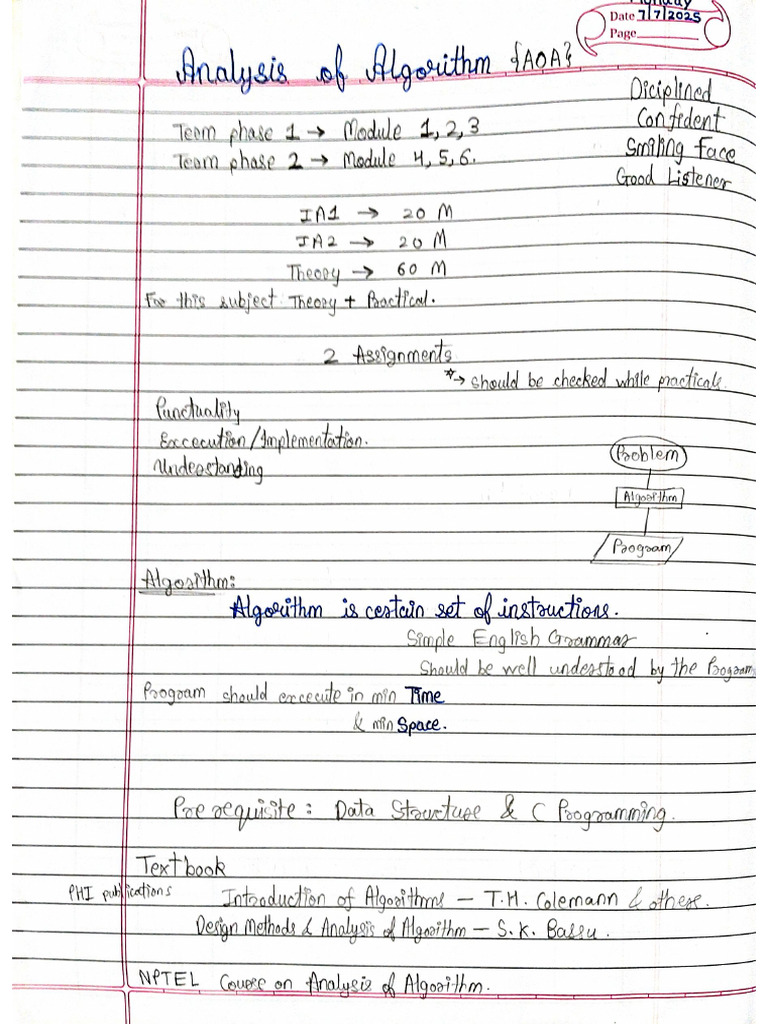 Monday
Date 7/7/2025
Page
Analysis of Algorithm {AOA}
Diciplined
Confident
Smiling Face
Good Listener
Team phase 1 → Module 1, 2, 3
Team phase 2 → Module 4, 5, 6.
IA1 → 20 M
IA2 → 20 M
Theory → 60 M
For this subject Theory + Practical.
2 Assignments
*→ should be checked while practicals
Punctuality
Excecution/Implementation.
Understanding
Problem
Algorithm
Program
Algorithm:
Algorithm is certain set of instructions.
Simple English Grammar
Should be well understood by the Program
Program should excecute in min Time
& min Space.
Prerequisite: Data Structure & C Programming.
Textbook
PHI publications Introduction of Algorithms — T.H. Colemann & others.
Design Methods & Analysis of Algorithm — S.K. Bassu.
NPTEL Course on Analysis of Algorithm.